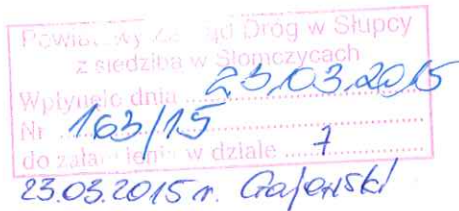 Powiatowy Zarząd Dróg w Słupcy
z siedzibą w Słomczycach
Wpłynęło dnia 23.03.2015
Nr 163/15
do załatwienia w dziale 7
23.03.2015 r.